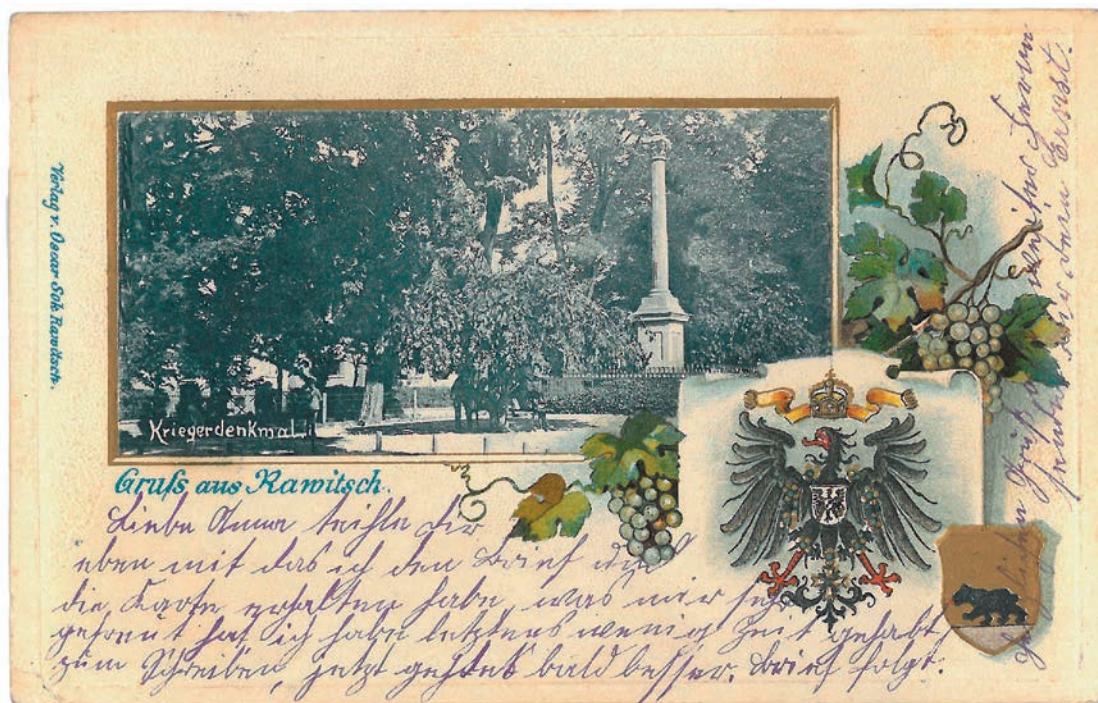 Verlag v. Oscar Sok Rawitsch.
Kriegerdenkmal
Gruß aus Rawitsch.
Liebe Anna teihle dir
eben mit das ich den Brief und
die Karte erhalten habe, was mir sehr
gefreut hat ich habe letztens wenig Zeit gehabt
zum Schreiben, jetzt gehtes bald besser. Brief folgt.
Gruß
sendet dir dein Ernst.